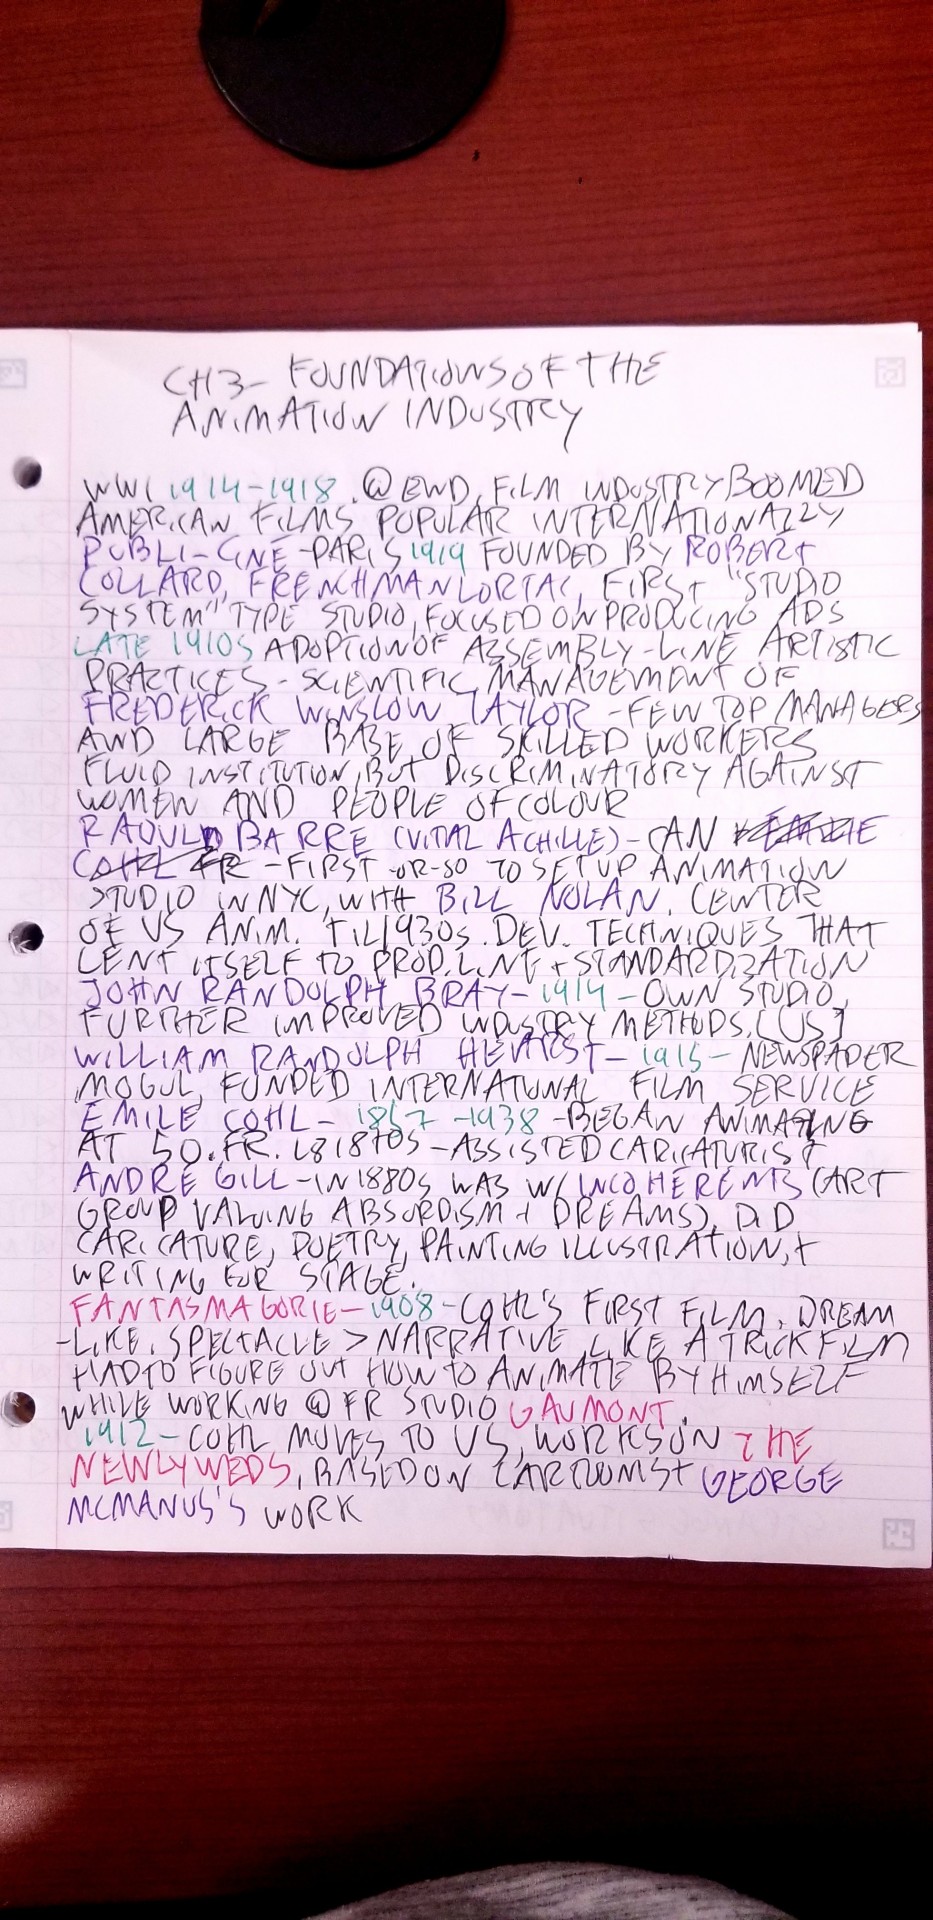 CH3- FOUNDATIONS OF THE
ANIMATION INDUSTRY
WWI 1914-1918. @ END, FILM INDUSTRY BOOMED
AMERICAN FILMS POPULAR INTERNATIONALLY
PUBLI-CINÉ -PARIS 1919 FOUNDED BY ROBERT
COLLARD, FRENCHMAN LORTAC, FIRST "STUDIO
SYSTEM" TYPE STUDIO, FOCUSED ON PRODUCING ADS
LATE 1910S ADOPTION OF ASSEMBLY-LINE ARTISTIC
PRACTICES - SCIENTIFIC MANAGEMENT OF
FREDERICK WINSLOW TAYLOR -FEW TOP MANAGERS
AND LARGE BASE OF SKILLED WORKERS
FLUID INSTITUTION, BUT DISCRIMINATORY AGAINST
WOMEN AND PEOPLE OF COLOUR
RAOUL BARRE (VITAL ACHILLE) - CAN
-FIRST -OR-SO TO SET UP ANIMATION
STUDIO IN NYC, WITH BILL NOLAN. CENTER
OF US ANIM. 'TIL 1930s. DEV. TECHNIQUES THAT
LENT ITSELF TO PROD. LINE + STANDARDIZATION
JOHN RANDOLPH BRAY- 1914 -OWN STUDIO,
FURTHER IMPROVED INDUSTRY METHODS. [US]
WILLIAM RANDOLPH HEARST- 1915 - NEWSPAPER
MOGUL, FUNDED INTERNATIONAL FILM SERVICE
EMILE COHL- 1857 -1938 -BEGAN ANIMATING
AT 50. FR. 1870S -ASSISTED CARICATURIST
ANDRÉ GILL -IN 1880s WAS W/ INCOHERENTS (ART
GROUP VALUING ABSURDISM + DREAMS), DID
CARICATURE, POETRY, PAINTING ILLUSTRATION, +
WRITING FOR STAGE.
FANTASMAGORIE- 1908 -COHL'S FIRST FILM, DREAM
-LIKE. SPECTACLE > NARRATIVE, LIKE A TRICK FILM
HAD TO FIGURE OUT HOW TO ANIMATE BY HIMSELF
WHILE WORKING @ FR STUDIO GAUMONT.
1912- COHL MOVES TO US, WORKS ON THE
NEWLYWEDS, BASED ON CARTOONIST GEORGE
MCMANUS'S WORK